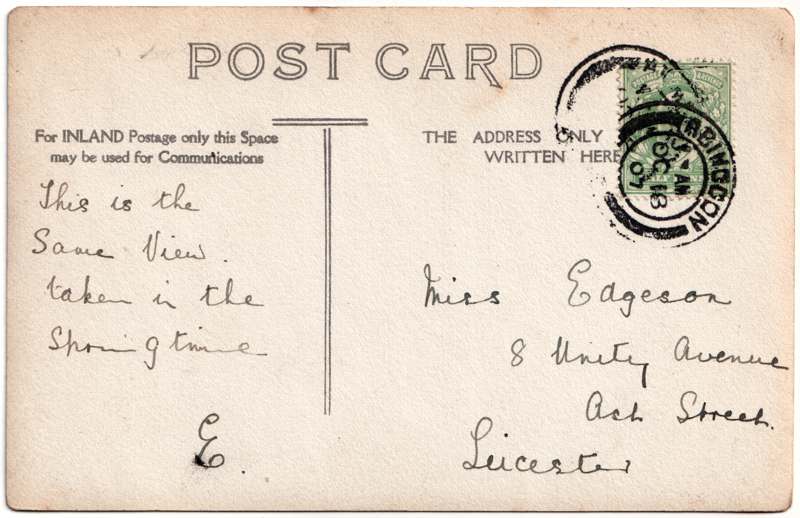 POST CARD
For INLAND Postage only this Space
may be used for Communications
THE ADDRESS ONLY
WRITTEN HERE
ABINGDON
AM
OC 18
07
This is the
Same View.
taken in the
Springtime
E.
Miss Edgeson
8 Unity Avenue
Ash Street.
Leicester